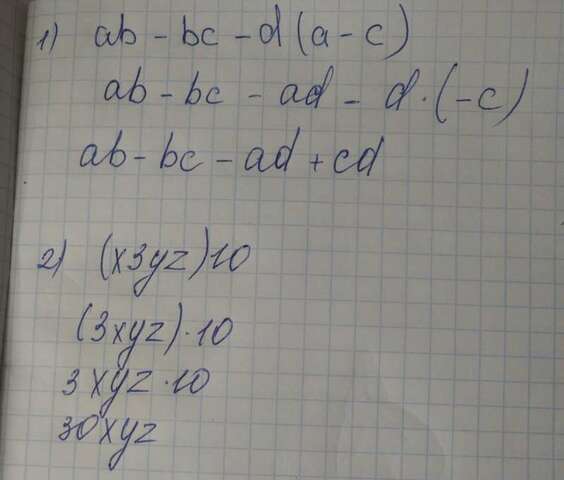 1) ab - bc - d(a - c)
ab - bc - ad - d·(-c)
ab - bc - ad + cd
2) (x3yz)10
(3xyz)·10
3xyz·10
30xyz